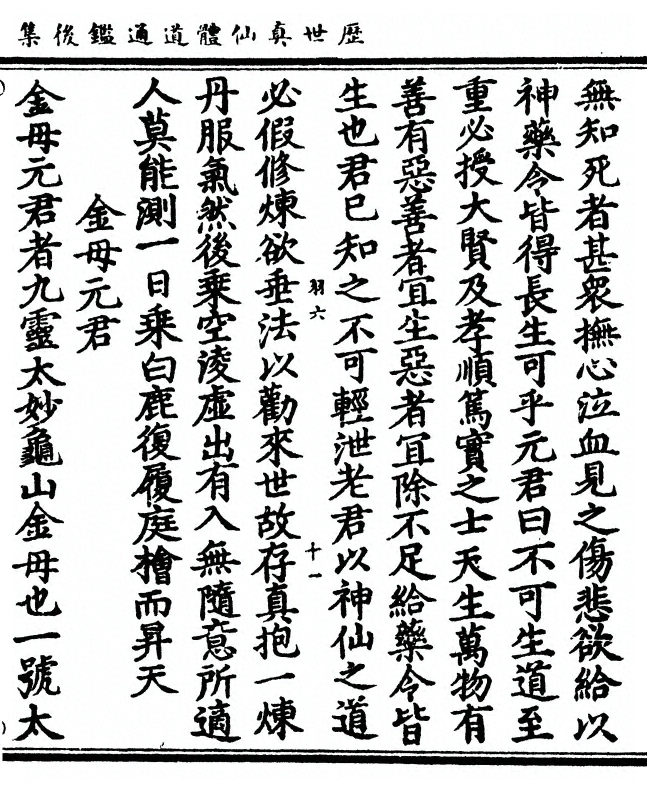 歷世真仙體道通鑑後集
無知死者甚衆撫心泣血見之傷悲欲給以
神藥令皆得長生可乎元君曰不可生道至
重必授大賢及孝順篤實之士天生萬物有
善有惡善者宜生惡者宜除不足給藥令皆
生也君已知之不可輕泄老君以神仙之道
羽六
十一
必假修煉欲垂法以勸來世故存真抱一煉
丹服氣然後乘空淩虛出有入無隨意所適
人莫能測一日乘白鹿復履庭檜而昇天
金母元君
金母元君者九靈太妙龜山金母也一號太